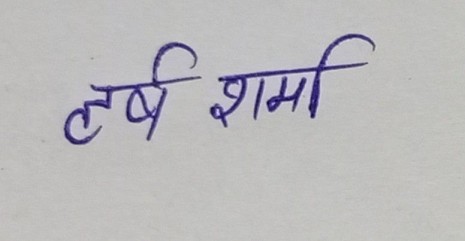 हर्ष शर्मा